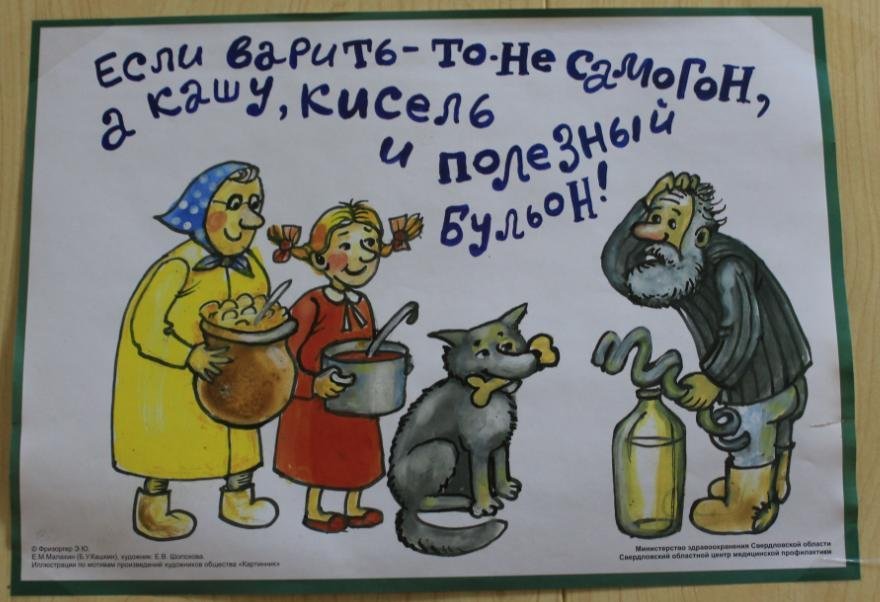 Если варить-то-не самогон,
а кашу, кисель
и полезный
бульон!
© Фризоргер Э.Ю.
Е.М.Малахин (Б.У.Кашкин), художник: Е.В. Шолохова.
Иллюстрации по мотивам произведений художников общества «Картинник»
Министерство здравоохранения Свердловской области
Свердловский областной центр медицинской профилактики